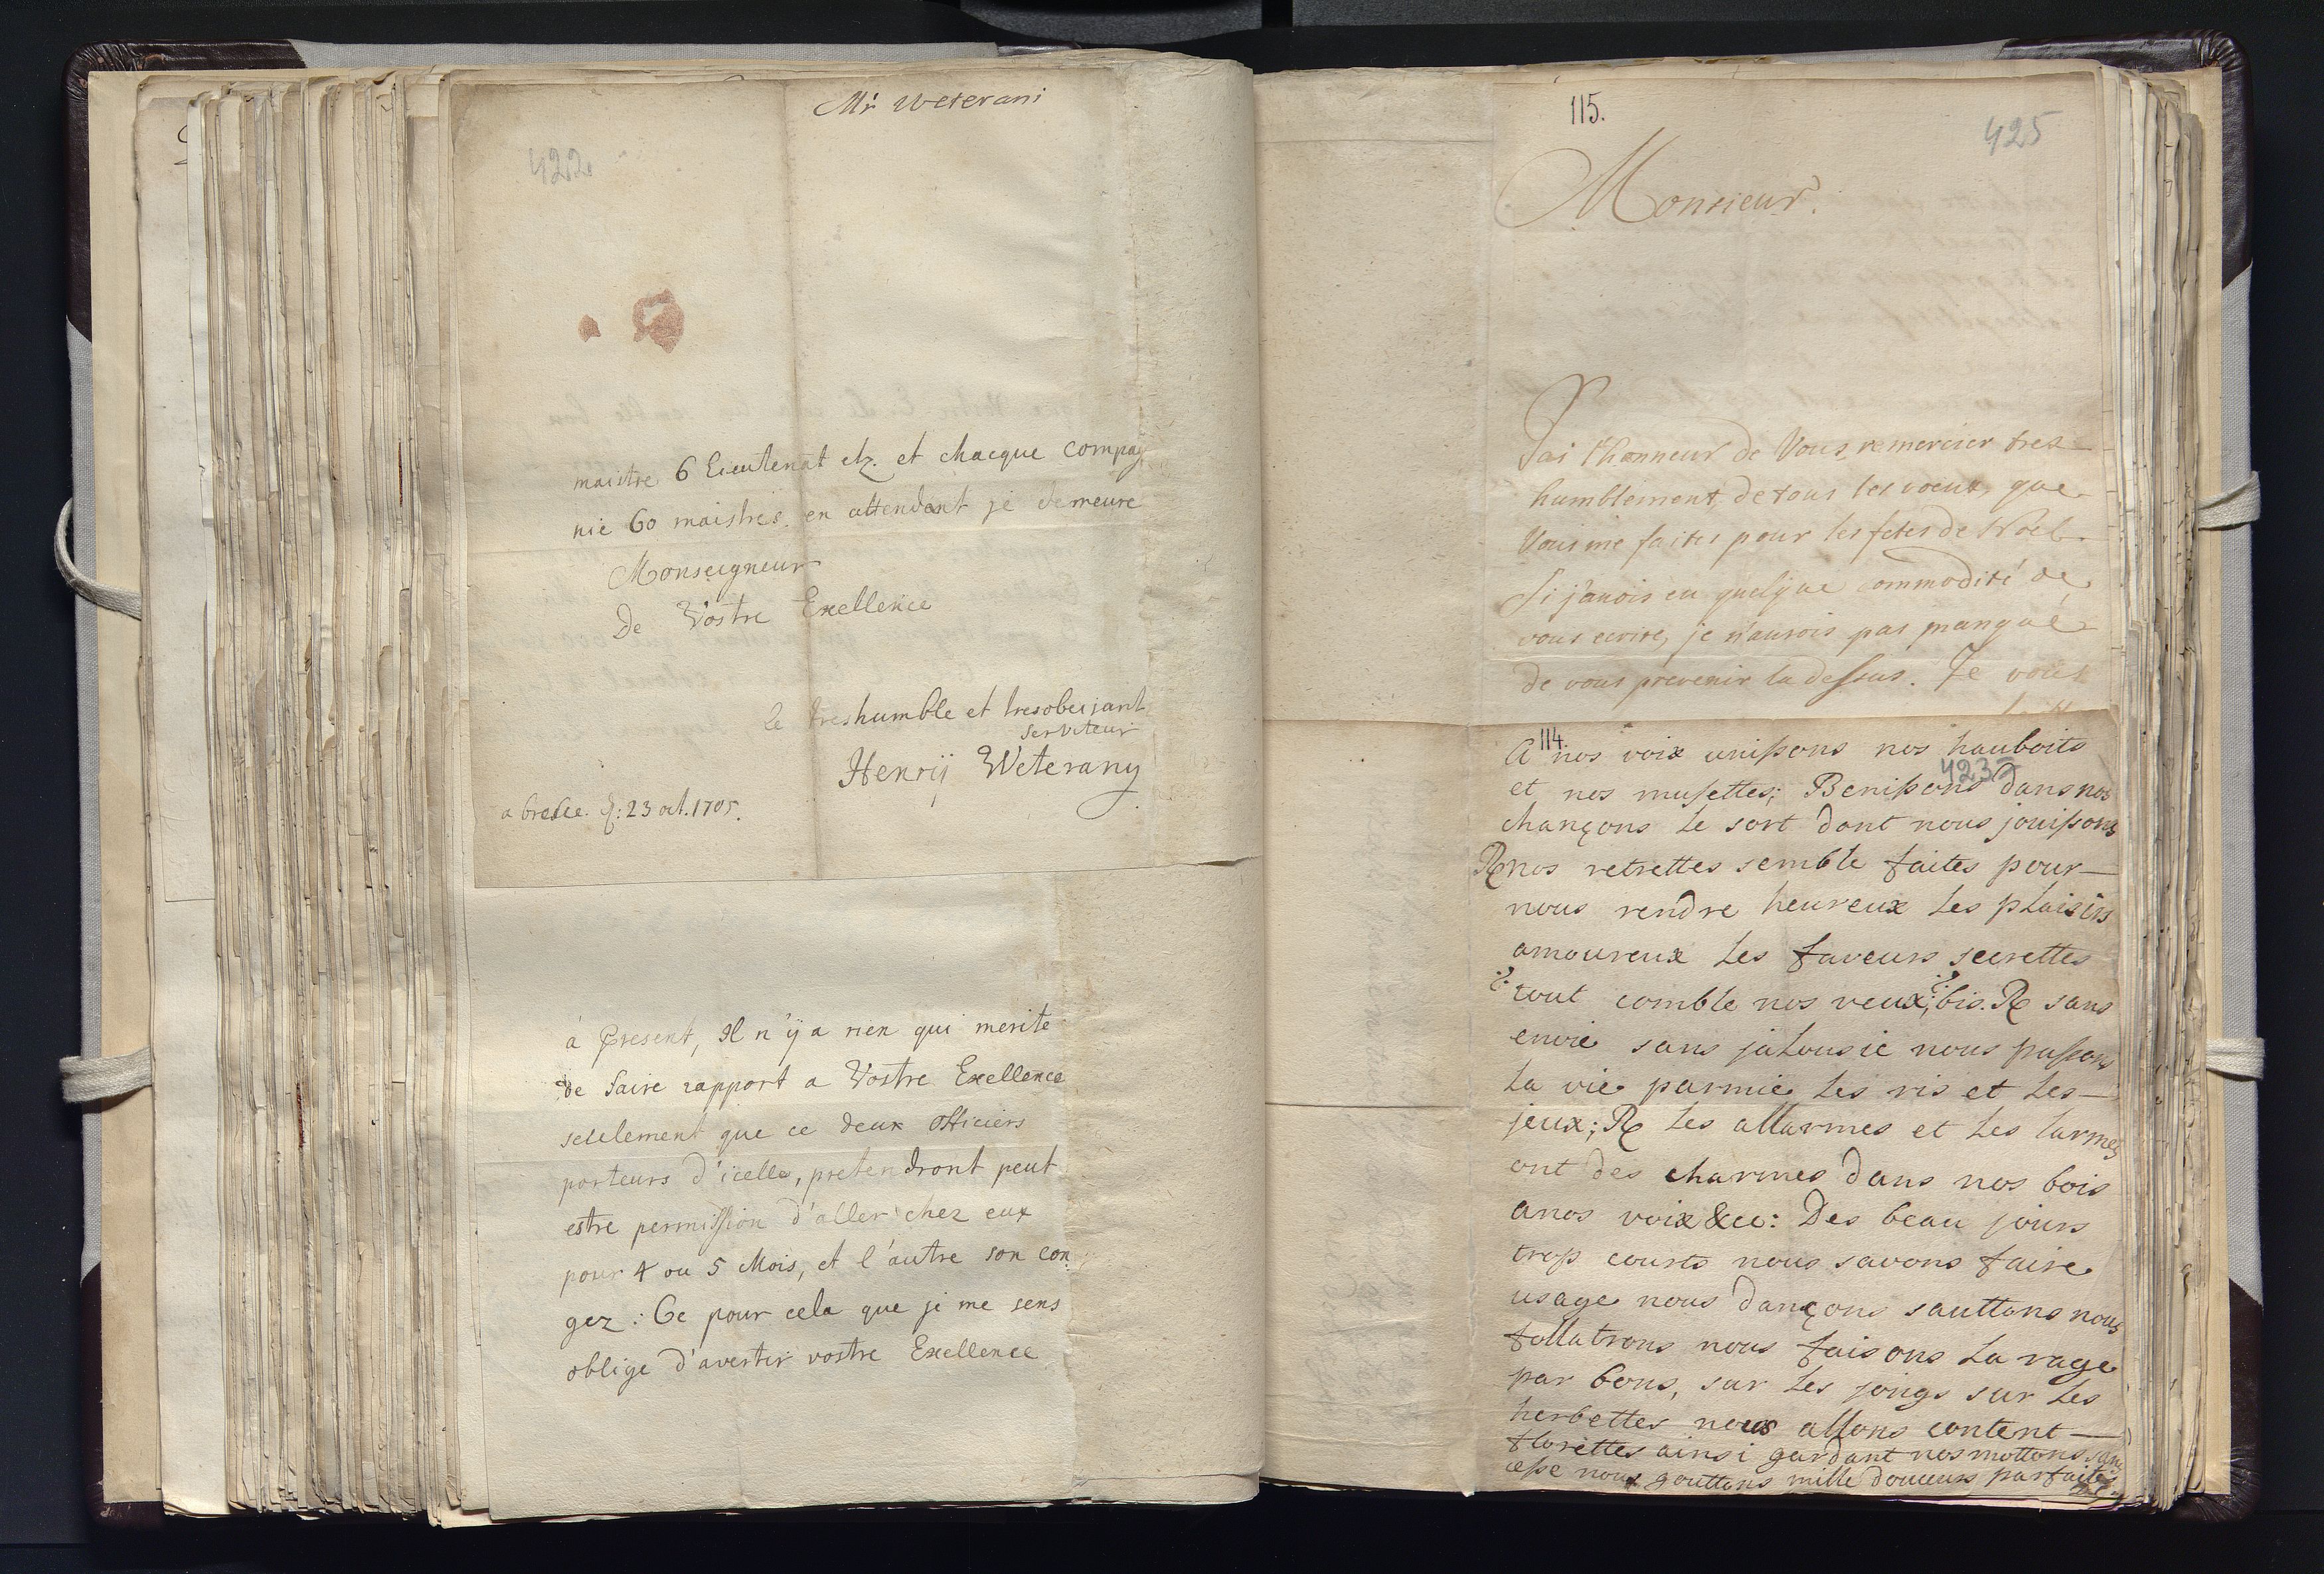 Mr Weterani
422
maitre 6 Lieutenat etz. et chacque compag
nie 60 maistres. en attendant je demeure
Monseigneur
De Vostre Exellence
le treshumble et tresobeijant
serviteur
Henrÿ Weterany
a bresce. 23 oct. 1705.
à present, Il n'ÿ a rien qui merite
de faire rapport a Vostre Exellence
seulement que ce deux officiers
porteurs d'icelle, pretendront peut
estre permission d'aller chez eux
pour 4 ou 5 Mois, et l'autre son con
gez: Ce pour cela que je me sens
oblige d'avertir vostre Exellence
115.
425
Monsieur.
J'ai l'honneur de Vous remercier tres
humblement de tous les voeux, que
Vous me faites pour les fetes de Noel.
Si j'avois eu quelque commodité de
vous ecrire, je n'aurois pas manqué
de vous prevenir la dessus. Je vous
114.
A nos voix unissons nos hauboits
423
et nos musettes; Benissons dans nos
chançons le sort dont nous jouissons
R nos retrettes semble faites pour
nous rendre heureux les plaisirs
amoureux les faveurs secrettes
tout comble nos veux; bis. R sans
envie sans jalousie nous passons
la vie parmie les ris et les
jeux; R les allarmes et les larmes
ont des charmes dans nos bois
anos voix &ce: Des beau jours
trop courts nous savons faire
usage nous dançons sauttons nous
follatrons nous faisons la rage
par bons, sur les joings sur les
herbettes nous allons content
florettes ainsi gardant nos mottons
cesse nous gouttons mille douceurs parfaites